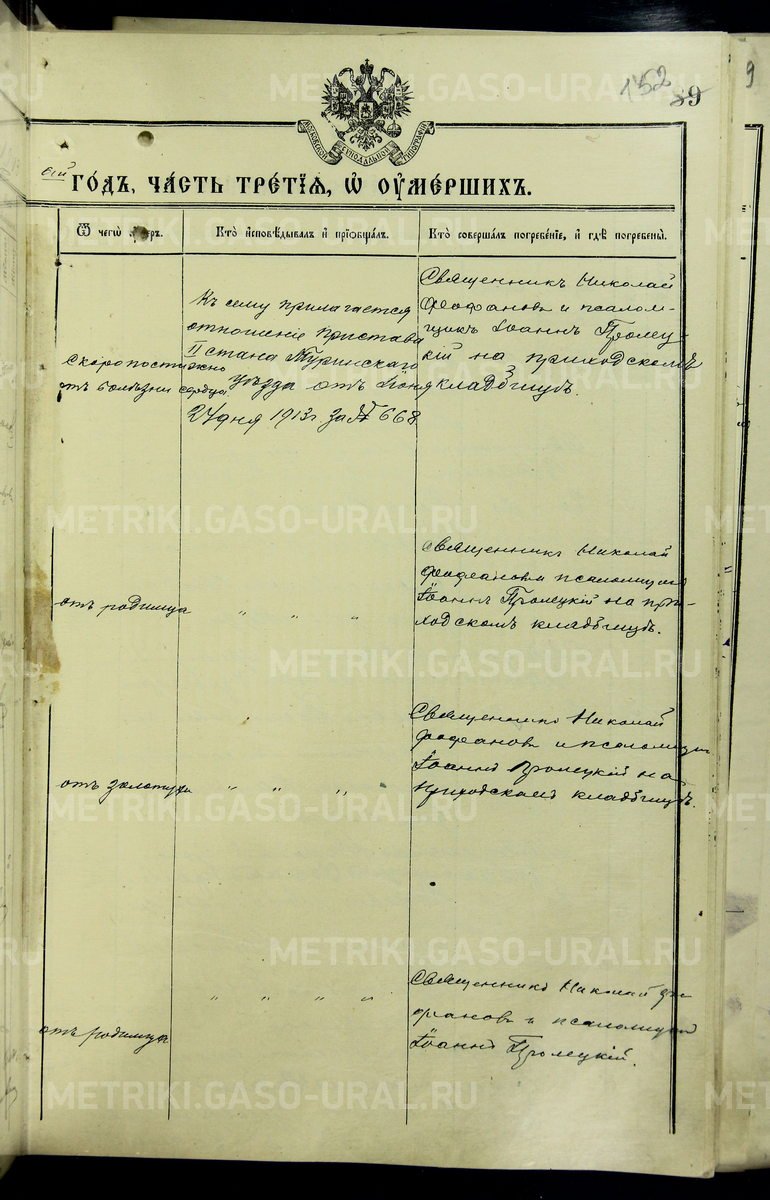 152
89
9
МОСКОВСКОЙ СѴНОДАЛЬНОЙ ТИПОГРАФІИ
ГОДЪ, ЧАСТЬ ТРЕТІЯ, Ѡ ОУМЕРШИХЪ.
Ѿ чегѡ
Кто исповѣдывалъ и прїобщалъ.
Кто совершалъ погребенїе, и гдѣ погребены.
Скоропостижно
отъ болѣзни сердца
Къ сему прилагается
отношеніе Пристава
II стана Туринскаго
уѣзда отъ Іюня
24 дня 1913 г. за № 668.
Священникъ Николай
Феофановъ и псалом-
щикъ Іоаннъ Пролец-
кій на приходскомъ
кладбищѣ.
отъ родимца
" " "
Священникъ Николай
Феофановъ и псаломщикъ
Іоаннъ Пролецкій на при-
ходскомъ кладбищѣ.
отъ золотухи
" " "
Священникъ Николай
Феофановъ и псаломщикъ
Іоаннъ Пролецкій на
приходскомъ кладбищѣ.
отъ родимца
" " " "
Священникъ Николай Фе-
офановъ и псаломщикъ
Іоаннъ Пролецкій.
METRIKI.GASO-URAL.RU